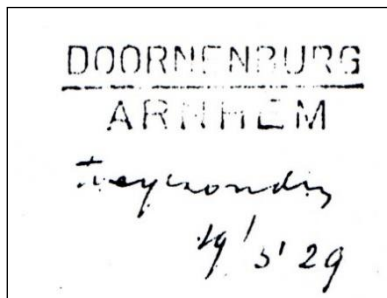 DOORNENBURG
ARNHEM
19/5'29